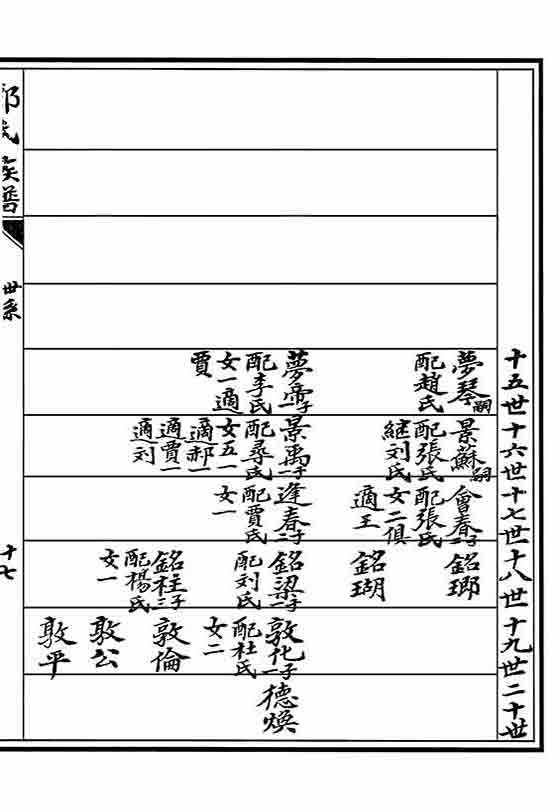 十五世
夢琴嗣
配趙氏
夢帝一子
配李氏
女一適
賈
十六世
景蘇嗣
配張氏
繼刘氏
景禹一子
配尋氏
女五一
適郝一
適賈一
適刘
十七世
會春二子
配張氏
女二俱
適王
逢春二子
配賈氏
女一
十八世
銘瑯
銘瑚
銘梁一子
配刘氏
銘柱三子
配楊氏
女一
十九世
敦化一子
配杜氏
女二
敦倫
敦公
敦平
二十世
德煥
氏族譜
世系
十七